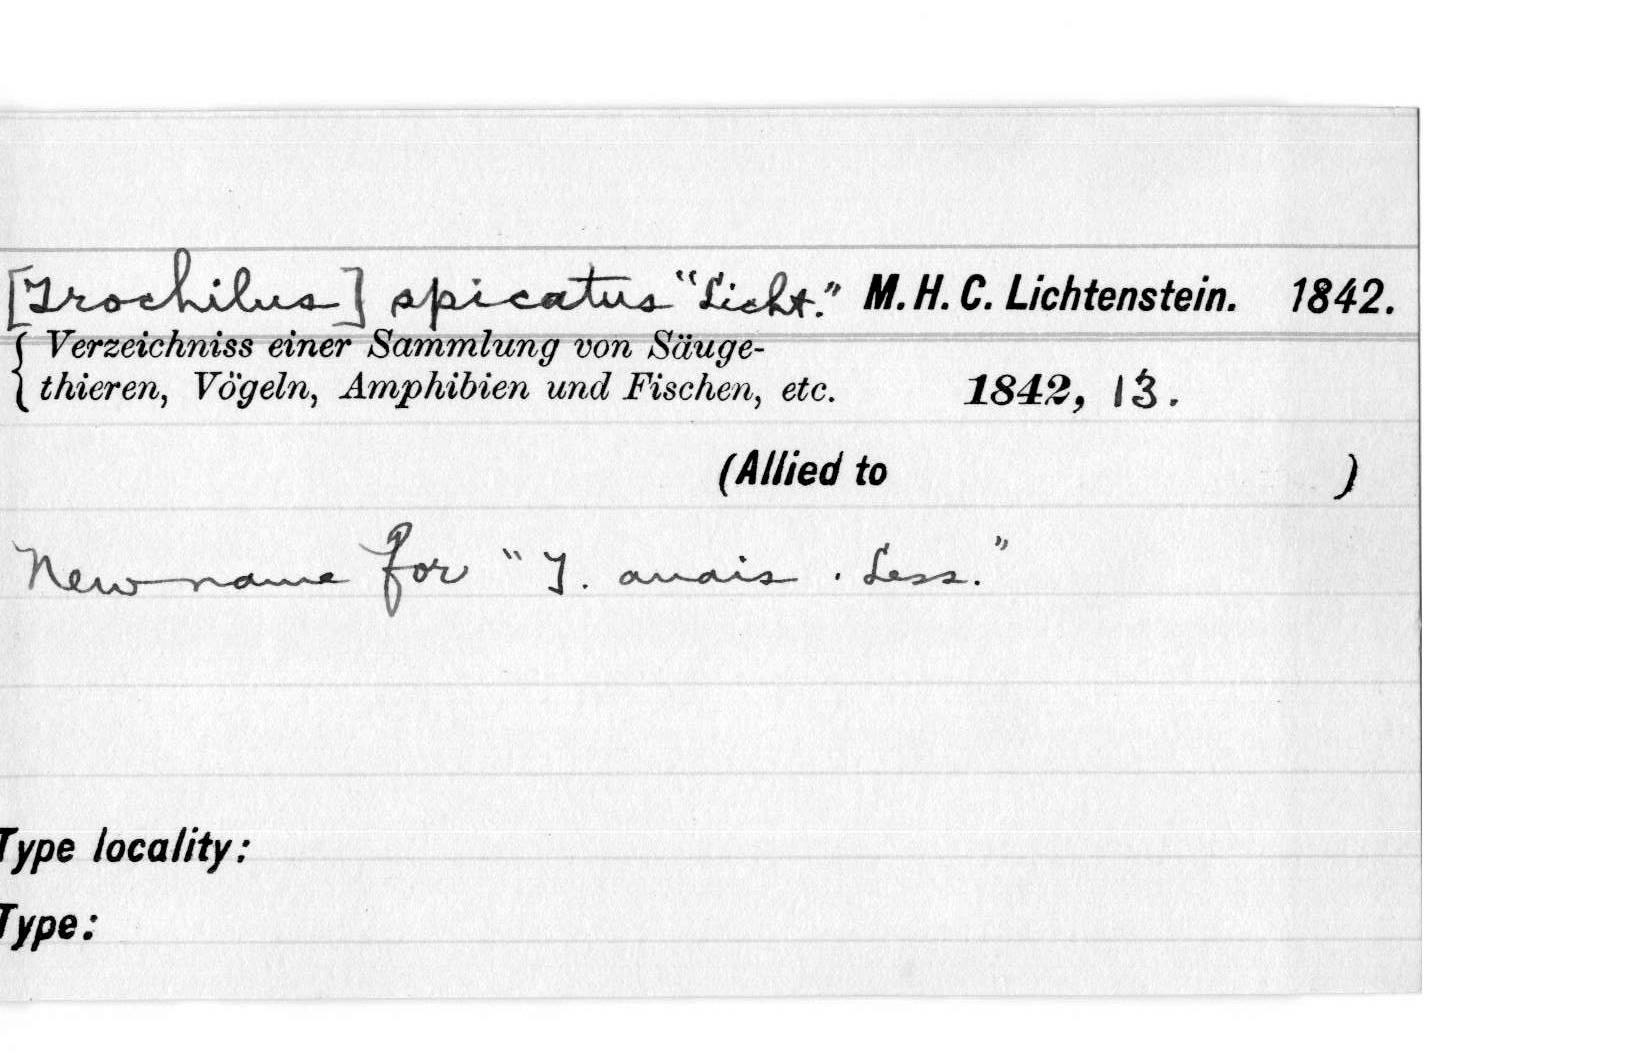 [Trochilus] spicatus "Licht." M. H. C. Lichtenstein. 1842.
Verzeichniss einer Sammlung von Säuge-
thieren, Vögeln, Amphibien und Fischen, etc. 1842, 13.
(Allied to )
New name for "T. anais. Less."
Type locality:
Type: